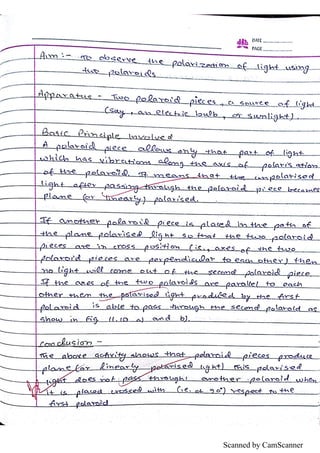 DATE
PAGE
Aim :- To observe the polarization of light using
two polaroids
Apparatus - Two polaroid pieces, a source of light
(say, an electric bulb, or sunlight).
Basic Principle Involved
A polaroid piece allows only that part of light
which has vibrations along the axis of polarisation
of the polaroid. It means that the unpolarised
light after passing through the polaroid piece becomes
plane (or linearly) polarised.
If another polaroid piece is placed in the path of
the plane polarised light so that the two polaroid
pieces are in cross position (i.e., axes of the two
polaroid pieces are perpendicular to each other) then
no light will come out of the second polaroid piece.
If the axes of the two polaroids are parallel to each
other then the polarised light produced by the first
polaroid is able to pass through the second polaroid as
show in Fig 11.10 a) and b).
Conclusion -
The above activity shows that polaroid pieces produce
plane (or linearly polarised light) this polarised
light does not pass through another polaroid when
it is placed crossed with (i.e. at 90°) respect to the
first polaroid
Scanned by CamScanner